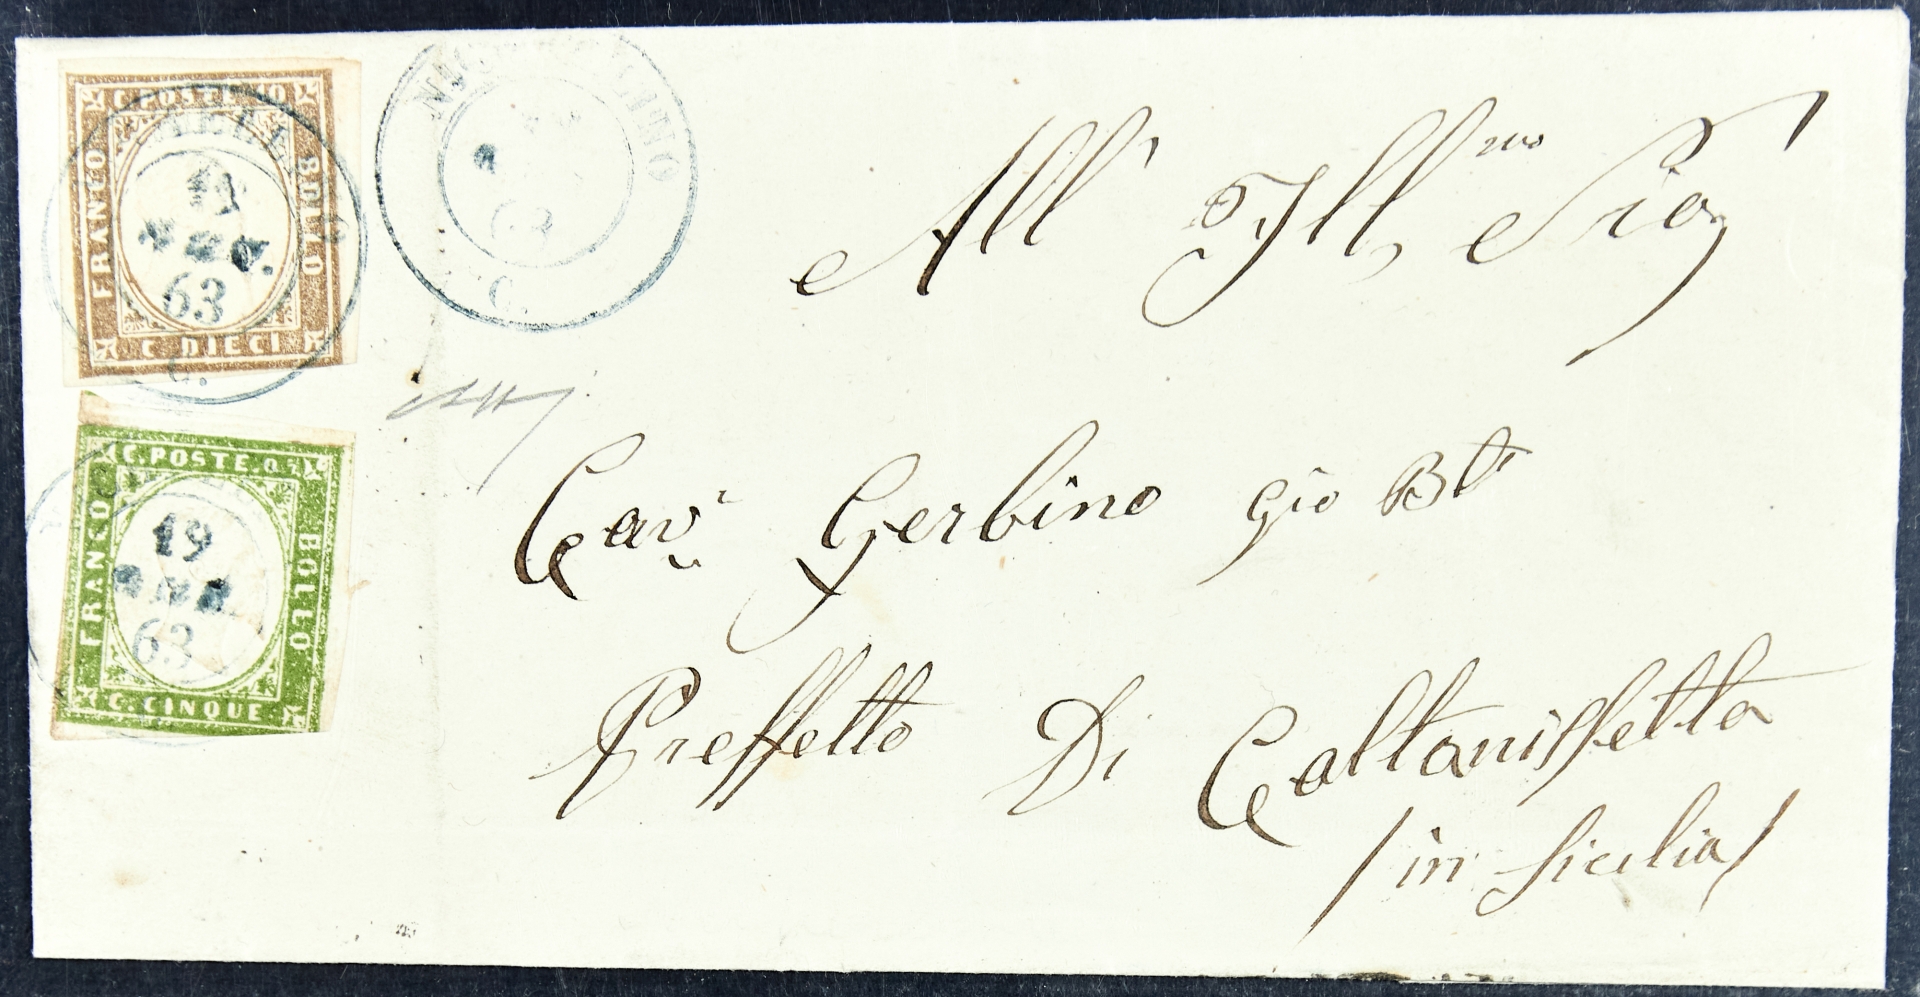 C. POSTE. 10
FRANCO
BOLLO
C. DIECI
19
63
C.
63
C.
C. POSTE. 05
FRANCO
BOLLO
C. CINQUE
19
63
All' Ill.mo Sig.
Cav.r Gerbino Gio Bta
Preffetto Di Caltanissetta
/in Sicilia/